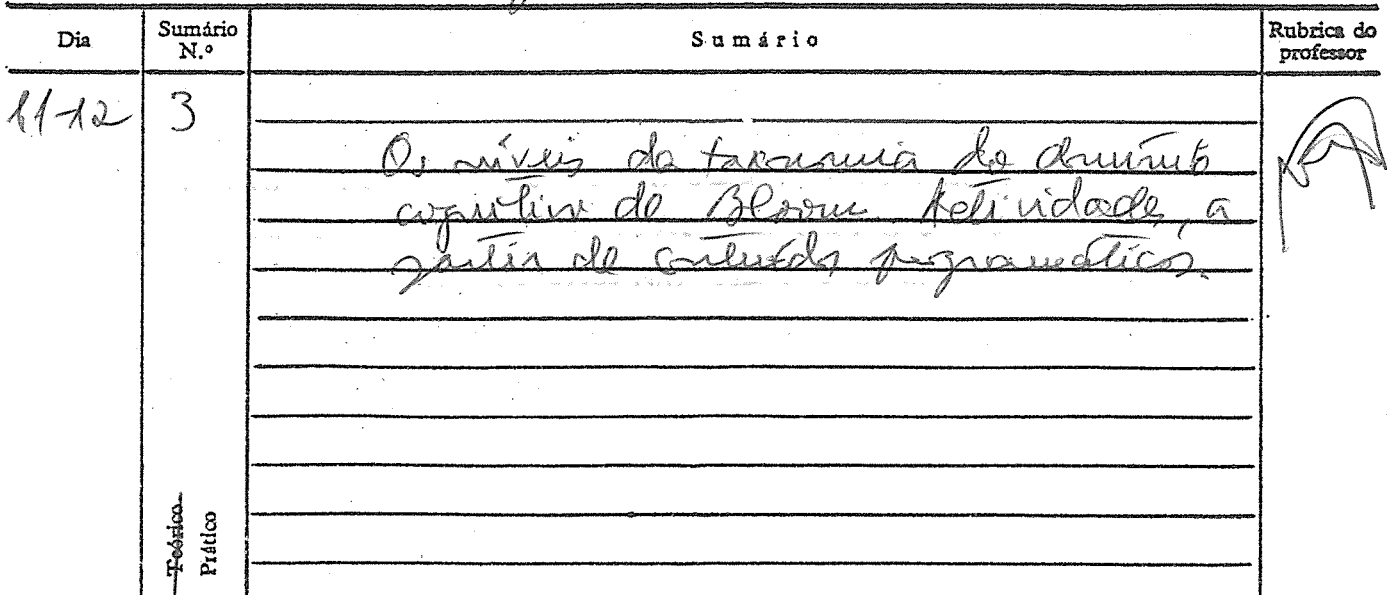 Dia
Sumário N.º
Sumário
Rubrica do professor
11-12
3
Os níveis da taxonomia do domínio
cognitivo de Bloom. Actividades, a
partir de conteúdos programáticos.
Teórico
Prático